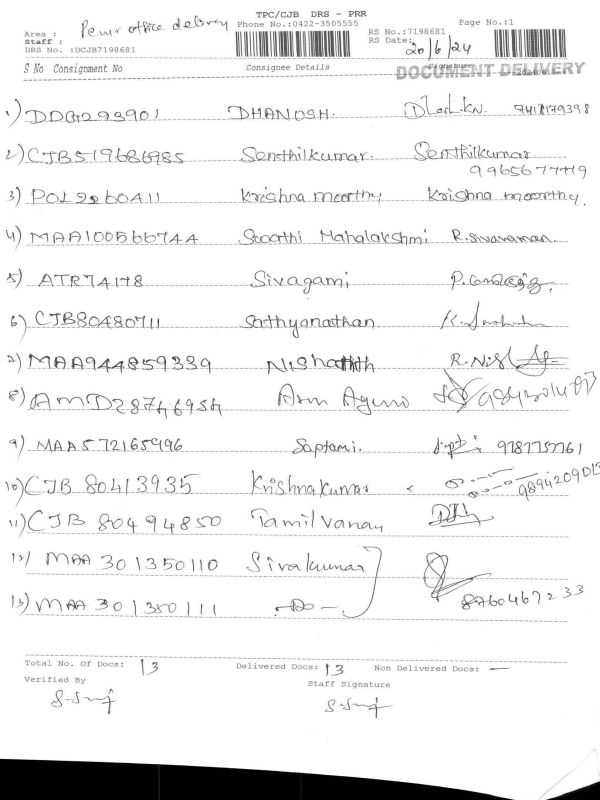 TPC/CJB DRS - PRR
Area : Peur office delivery Phone No.:0422-3505555 RS No.:7198681 Page No.:1
Staff : RS Date: 20/6/24
DRS No. :DCJB7198681
S No Consignment No Consignee Details Signature DOCUMENT DELIVERY
1) DDG293901 DHANUSH. 7418179398
2) CJB519686985 Senthilkumar. Senthilkumar
9965677719
3) POL2260411 Krishna moorthy Krishna moorthy.
4) MAA100566744 Swathi Mahalakshmi R.Sivaraman.
5) ATR74178 Sivagami
6) CJB80480711 Sathyanathan
7) MAA944859339 Nishanth R.Nis
8) AMD28746954
9) MAA572165996 Saptami. 9787757761
10) CJB 80413935 Krishnakumar
11) CJB 80494850 Tamilvanan
12) MAA 301350110 Sivakumar
13) MAA 301350111 -Do- 8760467233
Total No. Of Docs: 13 Delivered Docs: 13 Non Delivered Docs: —
Verified By Staff Signature